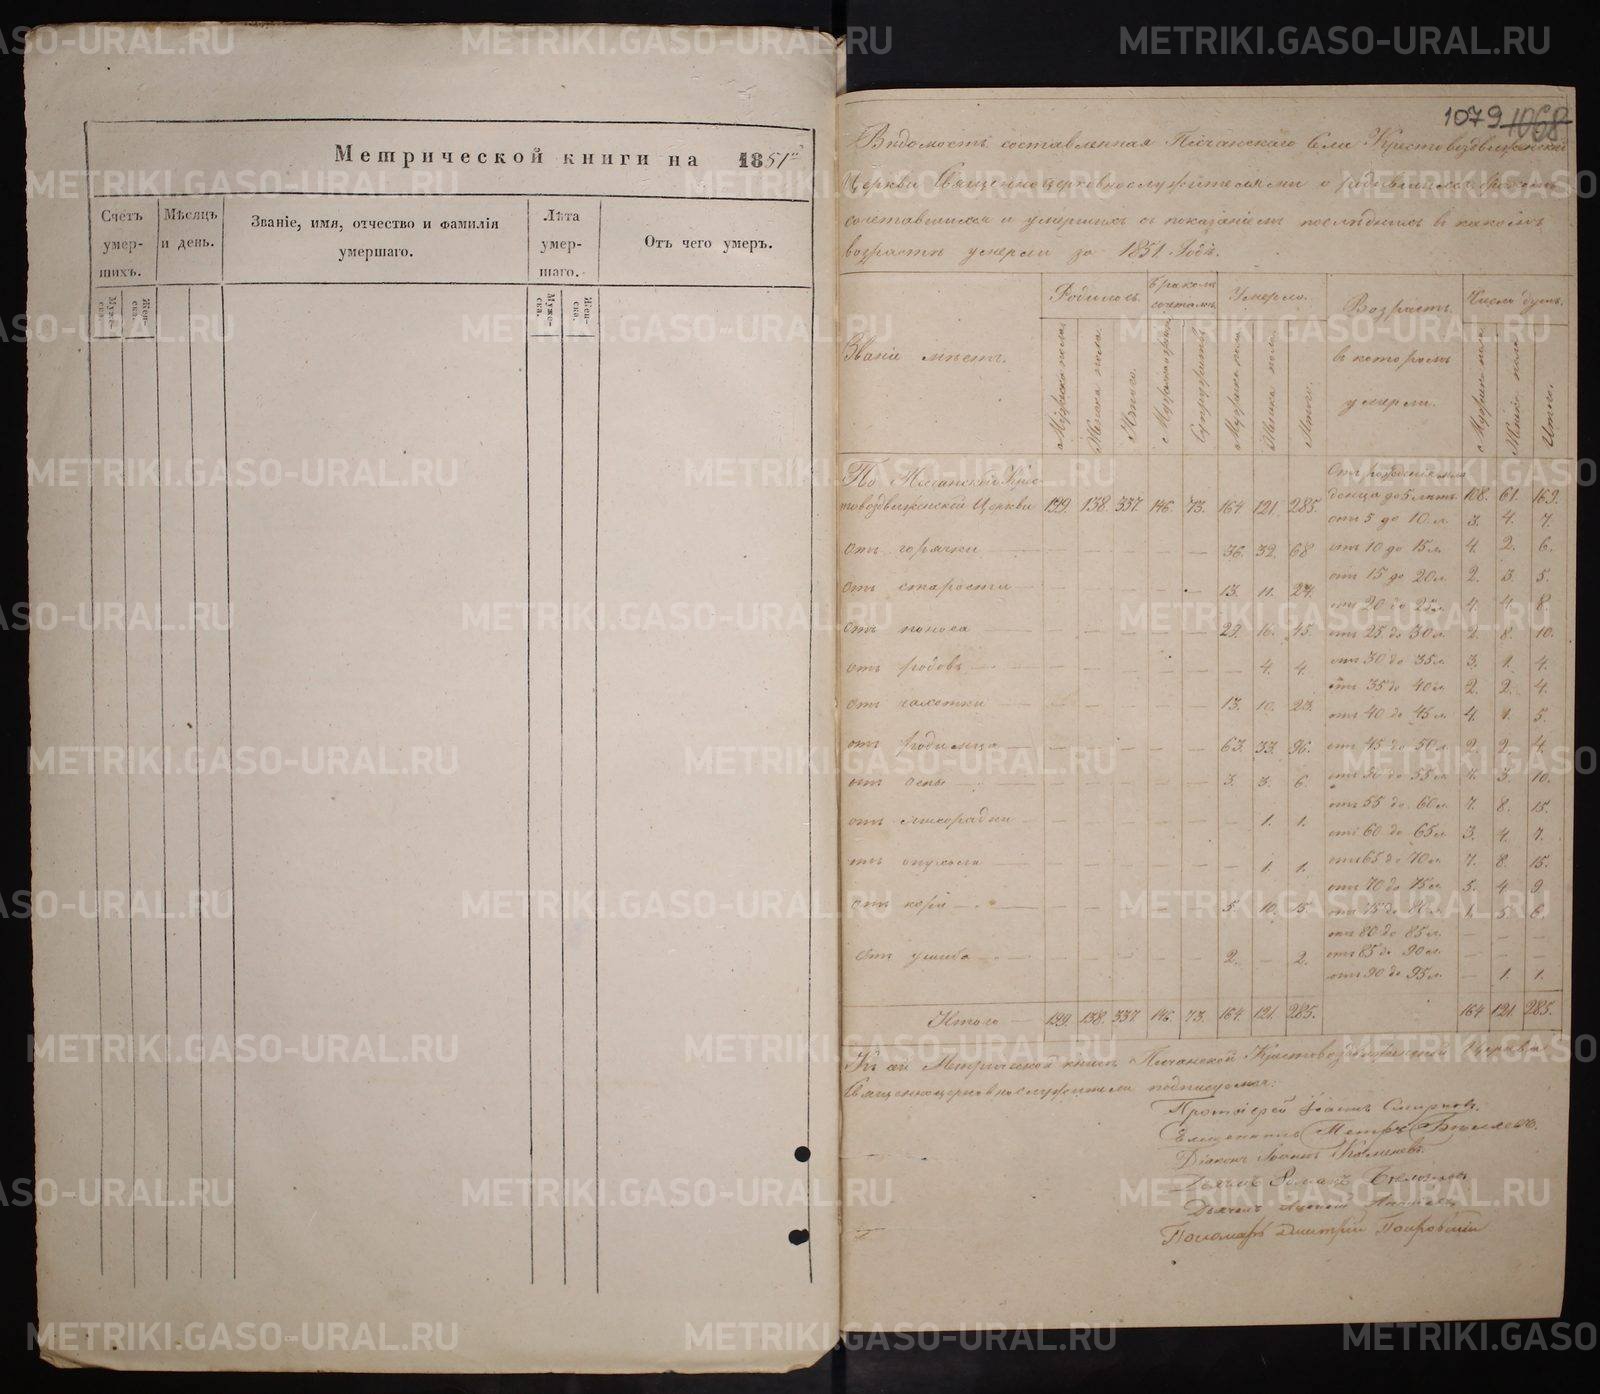 METRIKI.GASO-URAL.RU
Метрической книги на 1851й
Счетъ умер-шихъ.
Мѣсяцъ и день.
Званіе, имя, отчество и фамилія умершаго.
Лѣта умер-шаго.
Отъ чего умеръ.
Муже-ска.
Жен-ска.
Муже-ска.
Жен-ска.
1079 1068
Вѣдомость составленная Песчанскаго Села Крестовоздвиженской
Церкви Священноцерковнослужителями о родившихся бракомъ
сочетавшихся и умершихъ съ показаніемъ послѣднихъ въ какомъ
возрастѣ умерли за 1851 Годъ.
Званіе мѣстъ.
Родилось. Бракомъ сочетались Умерло.
Возрастъ въ которомъ умерли.
Число душъ.
Мужеска пола. Женска пола. Итого. Супружествъ Мужеска пола Женска пола Итого.
Мужеска пола Женска пола Итого.
По Песчанской Крес-
товоздвиженской Церкви 199. 138. 337. 146. 73. 164 121. 285.
отъ горячки 36. 32. 68
отъ старости 13. 11. 24.
отъ поноса 29. 16. 45.
отъ родовъ 4. 4.
отъ чахотки 13. 10. 23.
отъ родимца 63. 33. 96.
отъ оспы 3. 3. 6.
отъ лихорадки 1. 1.
отъ опухоли 1. 1.
отъ кори 5. 10. 15.
отъ ушиба 2. — 2.
Отъ рожденія мла-
денца до 5 лѣтъ. 108. 61. 169.
отъ 5 до 10 л. 3. 4. 7.
отъ 10 до 15 л. 4. 2. 6.
отъ 15 до 20 л. 2. 3. 5.
отъ 20 до 25 л. 4. 4. 8.
отъ 25 до 30 л. 2. 8. 10.
отъ 30 до 35 л. 3. 1. 4.
отъ 35 до 40 л. 2. 2. 4.
отъ 40 до 45 л. 4. 1. 5.
отъ 45 до 50 л. 2. 2. 4.
отъ 50 до 55 л. 7. 3. 10.
отъ 55 до 60 л. 7. 8. 15.
отъ 60 до 65 л. 3. 4. 7.
отъ 65 до 70 л. 7. 8. 15.
отъ 70 до 75 л. 5. 4. 9
отъ 75 до 80 л. 1. 5. 6.
отъ 80 до 85 л. — — —
отъ 85 до 90 л. — — —
отъ 90 до 95 л. — 1. 1.
Итого 199. 138. 337. 146. 73. 164. 121. 285. 164 121. 285.
Къ сей Метрической книгѣ Песчанской Крестовоздвиженской Церкви
Священноцерковнослужители подписуемся:
Протоіерей Іоаннъ Смирновъ.
Священникъ Петръ Бѣляевъ.
Діаконъ Іоаннъ
Дьячекъ Романъ
Дьячекъ
Пономарь Дмитрій Покровскій